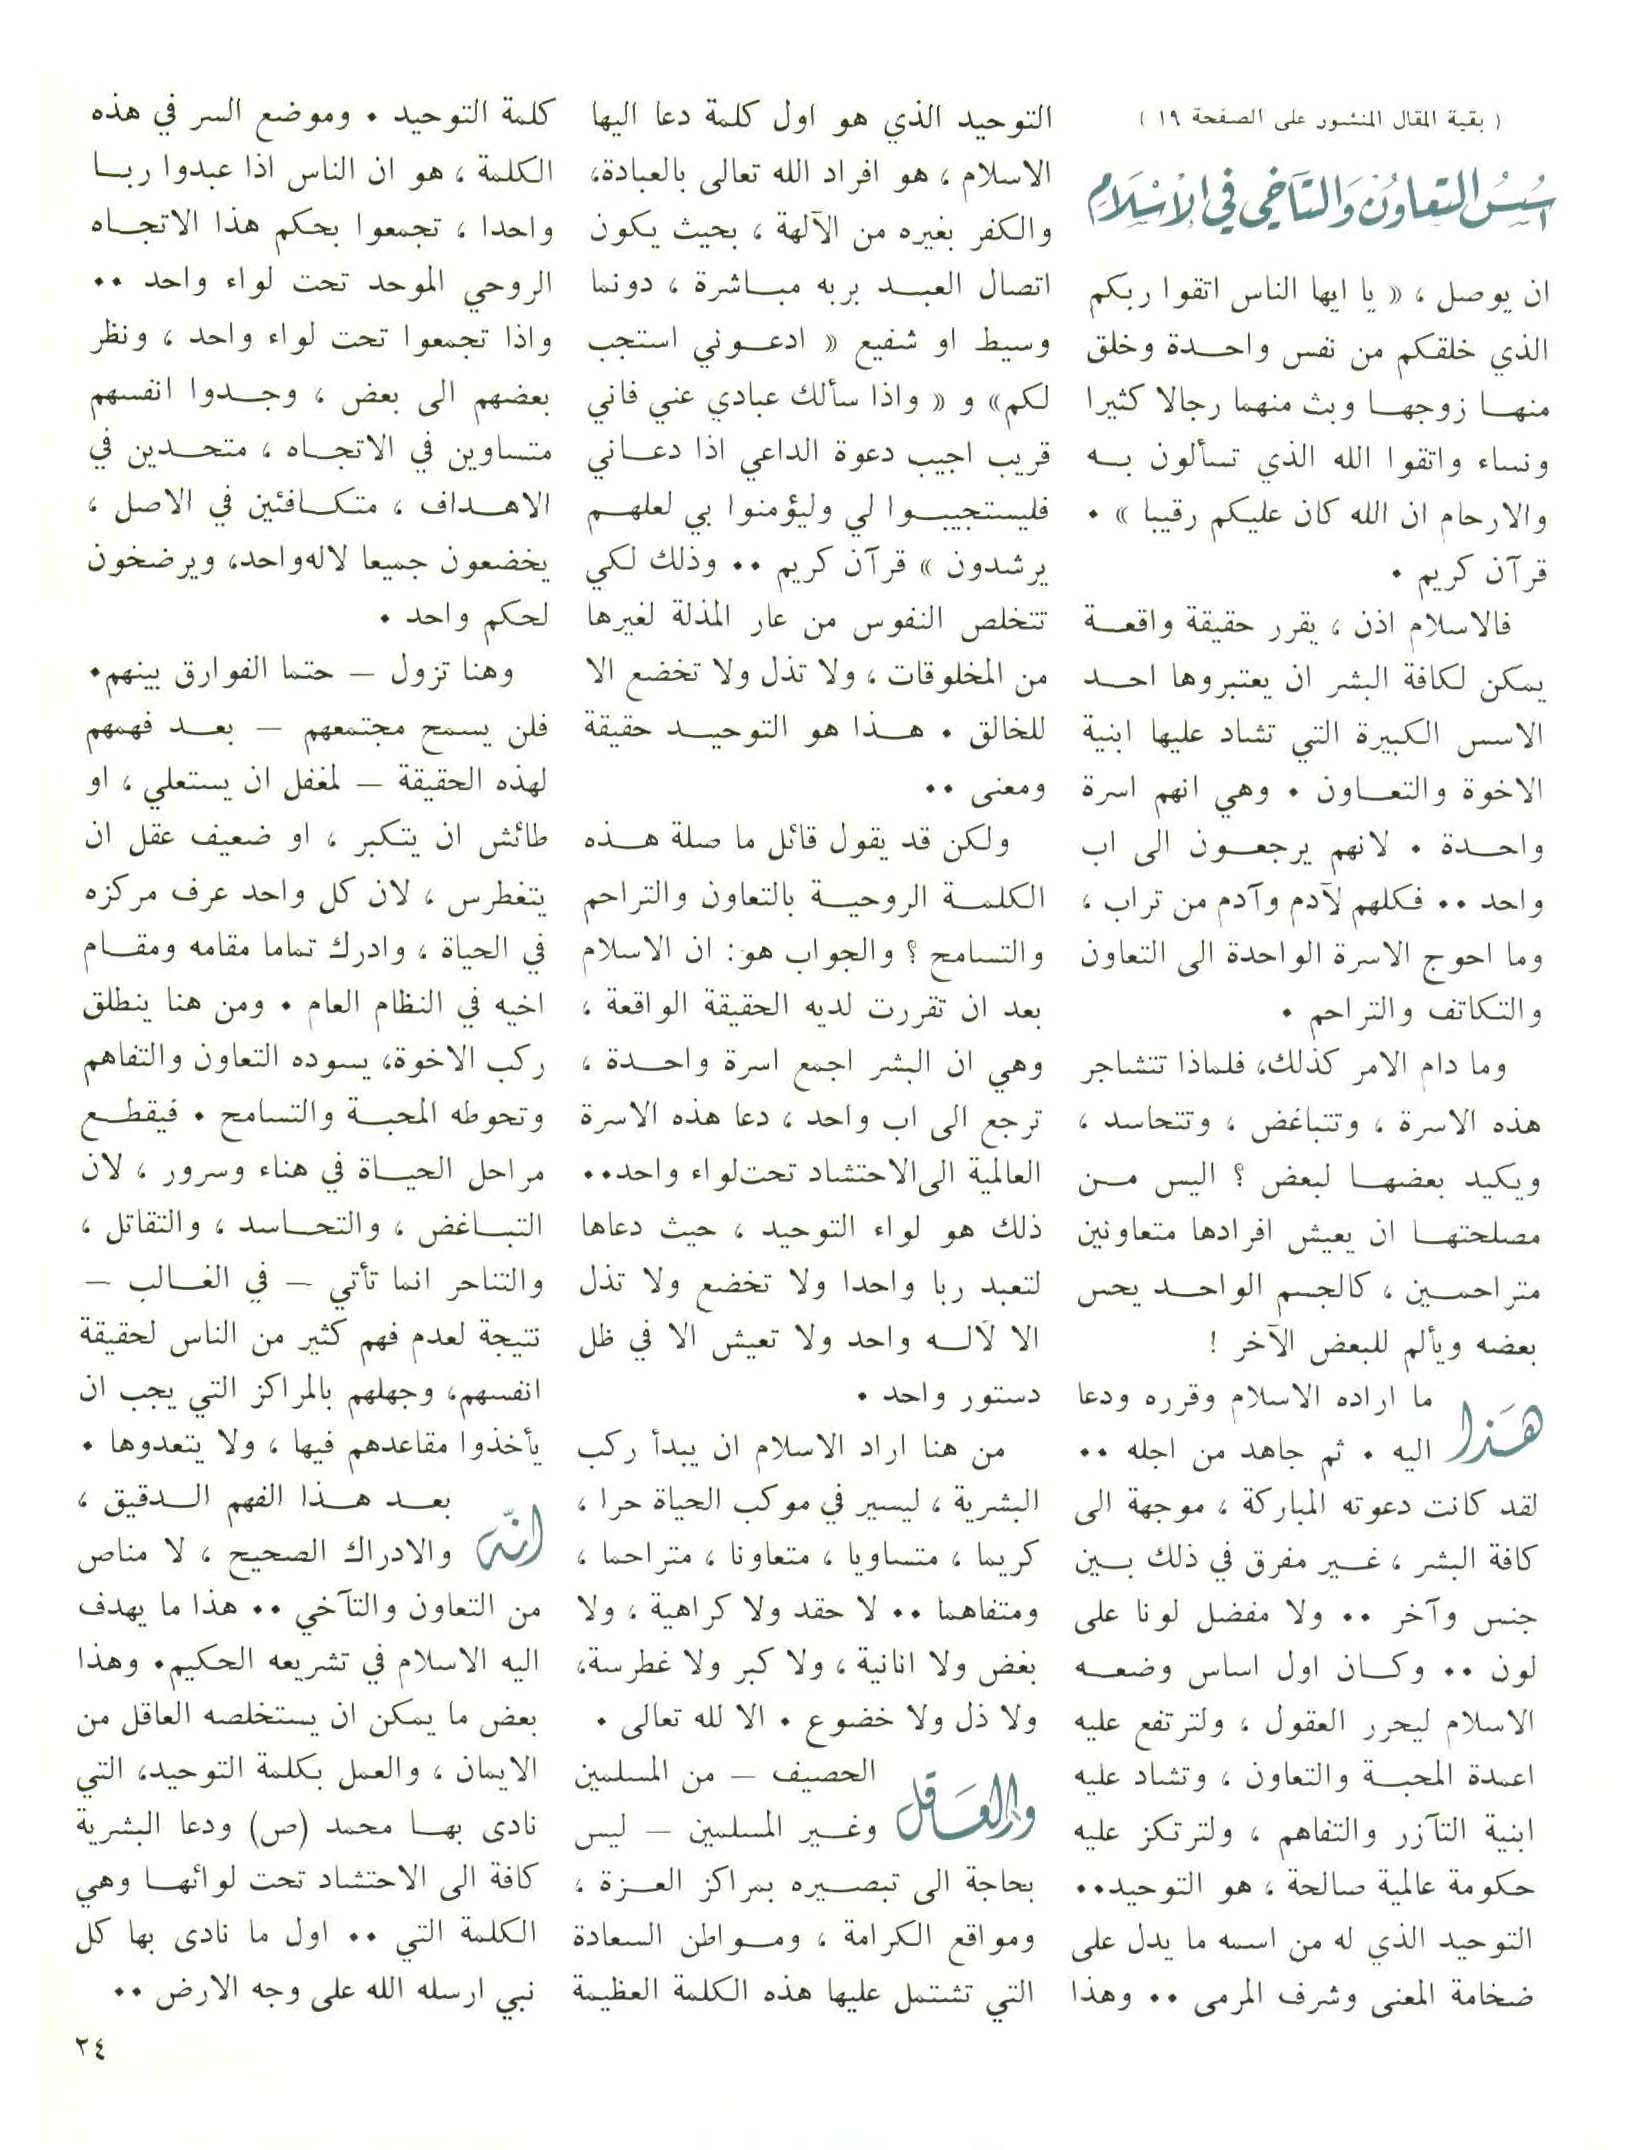 ( بقية المقال المنشور على الصفحة ١٩ )
اسُسُ التعاوُن وَالتآخي في الاسْلام
ان يوصل ، « يا ايها الناس اتقوا ربكم
الذي خلقكم من نفس واحدة وخلق
منها زوجها وبث منهما رجالا كثيرا
ونساء واتقوا الله الذي تسألون به
والارحام ان الله كان عليكم رقيبا » .
قرآن كريم .
فالاسلام اذن ، يقرر حقيقة واقعة
يمكن لكافة البشر ان يعتبروها احد
الاسس الكبيرة التي تشاد عليها ابنية
الاخوة والتعاون . وهي انهم اسرة
واحدة . لانهم يرجعون الى اب
واحد .. فكلهم لآدم وآدم من تراب ،
وما احوج الاسرة الواحدة الى التعاون
والتكاتف والتراحم .
وما دام الامر كذلك، فلماذا تتشاجر
هذه الاسرة ، وتتباغض ، وتتحاسد ،
ويكيد بعضها لبعض ؟ اليس من
مصلحتها ان يعيش افرادها متعاونين
متراحمين ، كالجسم الواحد يحس
بعضه ويألم للبعض الآخر !
هَذا ما اراده الاسلام وقرره ودعا
اليه . ثم جاهد من اجله ..
لقد كانت دعوته المباركة ، موجهة الى
كافة البشر ، غير مفرق في ذلك بين
جنس وآخر .. ولا مفضل لونا على
لون .. وكان اول اساس وضعه
الاسلام ليحرر العقول ، ولترتفع عليه
اعمدة المحبة والتعاون ، وتشاد عليه
ابنية التآزر والتفاهم ، ولترتكز عليه
حكومة عالمية صالحة ، هو التوحيد..
التوحيد الذي له من اسمه ما يدل على
ضخامة المعنى وشرف المرمى .. وهذا
التوحيد الذي هو اول كلمة دعا اليها
الاسلام ، هو افراد الله تعالى بالعبادة،
والكفر بغيره من الآلهة ، بحيث يكون
اتصال العبد بربه مباشرة ، دونما
وسيط او شفيع « ادعوني استجب
لكم» و « واذا سألك عبادي عني فاني
قريب اجيب دعوة الداعي اذا دعاني
فليستجيبوا لي وليؤمنوا بي لعلهم
يرشدون » قرآن كريم .. وذلك لكي
تتخلص النفوس من عار المذلة لغيرها
من المخلوقات ، ولا تذل ولا تخضع الا
للخالق . هذا هو التوحيد حقيقة
ومعنى ..
ولكن قد يقول قائل ما صلة هذه
الكلمة الروحية بالتعاون والتراحم
والتسامح ؟ والجواب هو: ان الاسلام
بعد ان تقررت لديه الحقيقة الواقعة ،
وهي ان البشر اجمع اسرة واحدة ،
ترجع الى اب واحد ، دعا هذه الاسرة
العالمية الى الاحتشاد تحت لواء واحد..
ذلك هو لواء التوحيد ، حيث دعاها
لتعبد ربا واحدا ولا تخضع ولا تذل
الا لآله واحد ولا تعيش الا في ظل
دستور واحد .
من هنا اراد الاسلام ان يبدأ ركب
البشرية ، ليسير في موكب الحياة حرا ،
كريما ، متساويا ، متعاونا ، متراحما ،
ومتفاهما .. لا حقد ولا كراهية ، ولا
بغض ولا انانية ، ولا كبر ولا غطرسة،
ولا ذل ولا خضوع . الا لله تعالى .
والعَاقل الحصيف – من المسلمين
وغير المسلمين – ليس
بحاجة الى تبصيره بمراكز العزة ،
ومواقع الكرامة ، ومواطن السعادة
التي تشتمل عليها هذه الكلمة العظيمة
كلمة التوحيد . وموضع السر في هذه
الكلمة ، هو ان الناس اذا عبدوا ربا
واحدا ، تجمعوا بحكم هذا الاتجاه
الروحي الموحد تحت لواء واحد ..
واذا تجمعوا تحت لواء واحد ، ونظر
بعضهم الى بعض ، وجدوا انفسهم
متساوين في الاتجاه ، متحدين في
الاهداف ، متكافئين في الاصل ،
يخضعون جميعا لاله واحد، ويرضخون
لحكم واحد .
وهنا تزول – حتما الفوارق بينهم.
فلن يسمح مجتمعهم – بعد فهمهم
لهذه الحقيقة – لمغفل ان يستعلي ، او
طائش ان يتكبر ، او ضعيف عقل ان
يتغطرس ، لان كل واحد عرف مركزه
في الحياة ، وادرك تماما مقامه ومقام
اخيه في النظام العام . ومن هنا ينطلق
ركب الاخوة، يسوده التعاون والتفاهم
وتحوطه المحبة والتسامح . فيقطع
مراحل الحياة في هناء وسرور ، لان
التباغض ، والتحاسد ، والتقاتل ،
والتناحر انما تأتي – في الغالب –
نتيجة لعدم فهم كثير من الناس لحقيقة
انفسهم، وجهلهم بالمراكز التي يجب ان
يأخذوا مقاعدهم فيها ، ولا يتعدوها .
انّه بعد هذا الفهم الدقيق ،
والادراك الصحيح ، لا مناص
من التعاون والتآخي .. هذا ما يهدف
اليه الاسلام في تشريعه الحكيم. وهذا
بعض ما يمكن ان يستخلصه العاقل من
الايمان ، والعمل بكلمة التوحيد، التي
نادى بها محمد (ص) ودعا البشرية
كافة الى الاحتشاد تحت لوائها وهي
الكلمة التي .. اول ما نادى بها كل
نبي ارسله الله على وجه الارض ..
٢٤